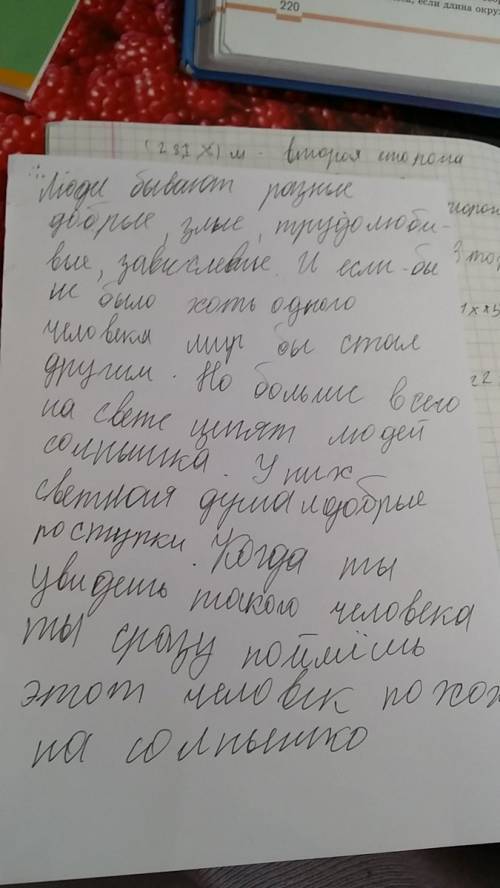 220
, если длина окру
(231 x) м - вторая сторона
Люди бывают разные
добрые, злые, трудолюби-
вые, зависливые. И если-бы
не было хоть одного
человека мир бы стал
другим. Но больше всего
на свете ценят людей
солнышка. У них
светлая душа и добрые
поступки. Когда ты
увидешь такого человека
ты сразу поймёшь
этот человек похож
на солнышко